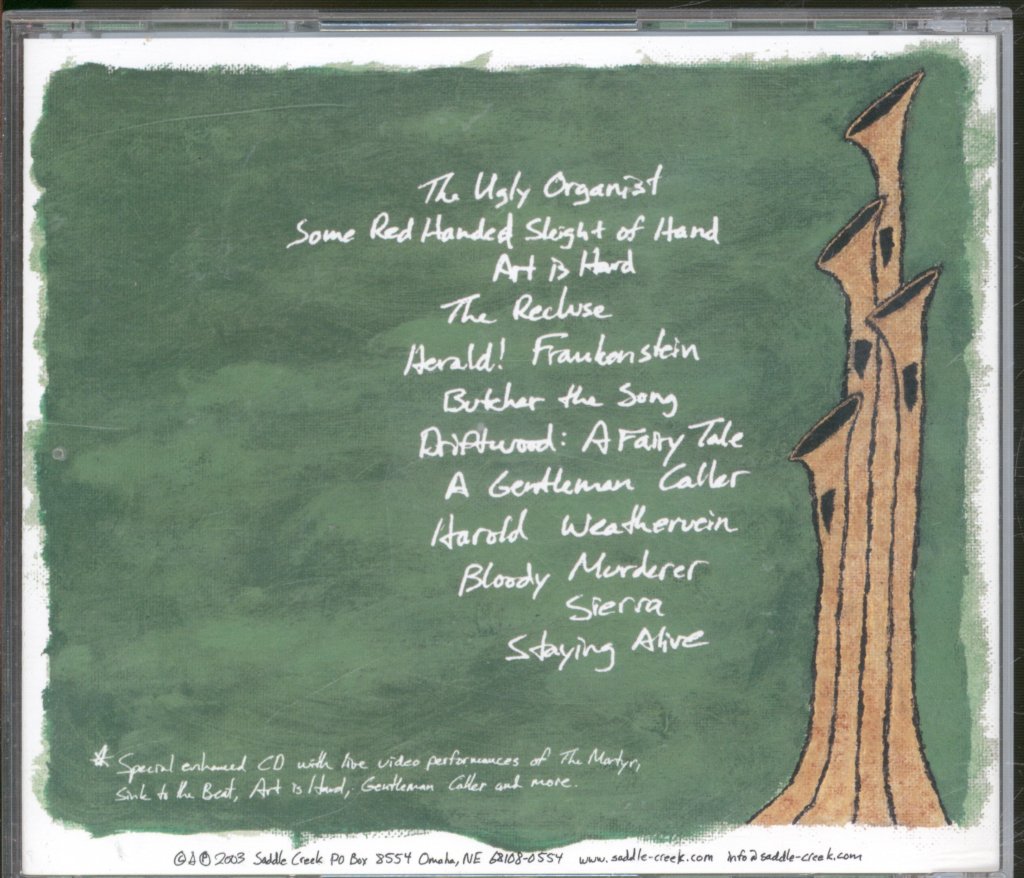 The Ugly Organist
Some Red Handed Sleight of Hand
Art is Hard
The Recluse
Herald! Frankenstein
Butcher the Song
Driftwood: A Fairy Tale
A Gentleman Caller
Harold Weathervein
Bloody Murderer
Sierra
Staying Alive
* Special enhanced CD with live video performances of The Martyr,
Sink to the Beat, Art is Hard, Gentleman Caller and more.
©&℗ 2003 Saddle Creek PO Box 8554 Omaha, NE 68108-0554 www.saddle-creek.com info@saddle-creek.com